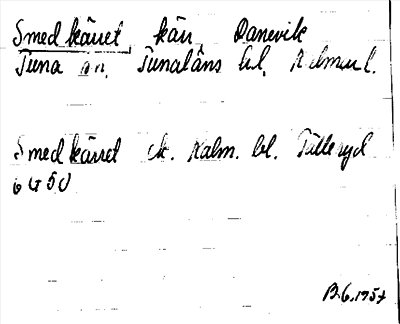 Smedkärret, kärr Danevik
Tuna sn. Tunaläns hd. Kalmar l.
Smedkärret ek. Kalm. bl. Tälleryd
6 G 5 0
B.G. 1957